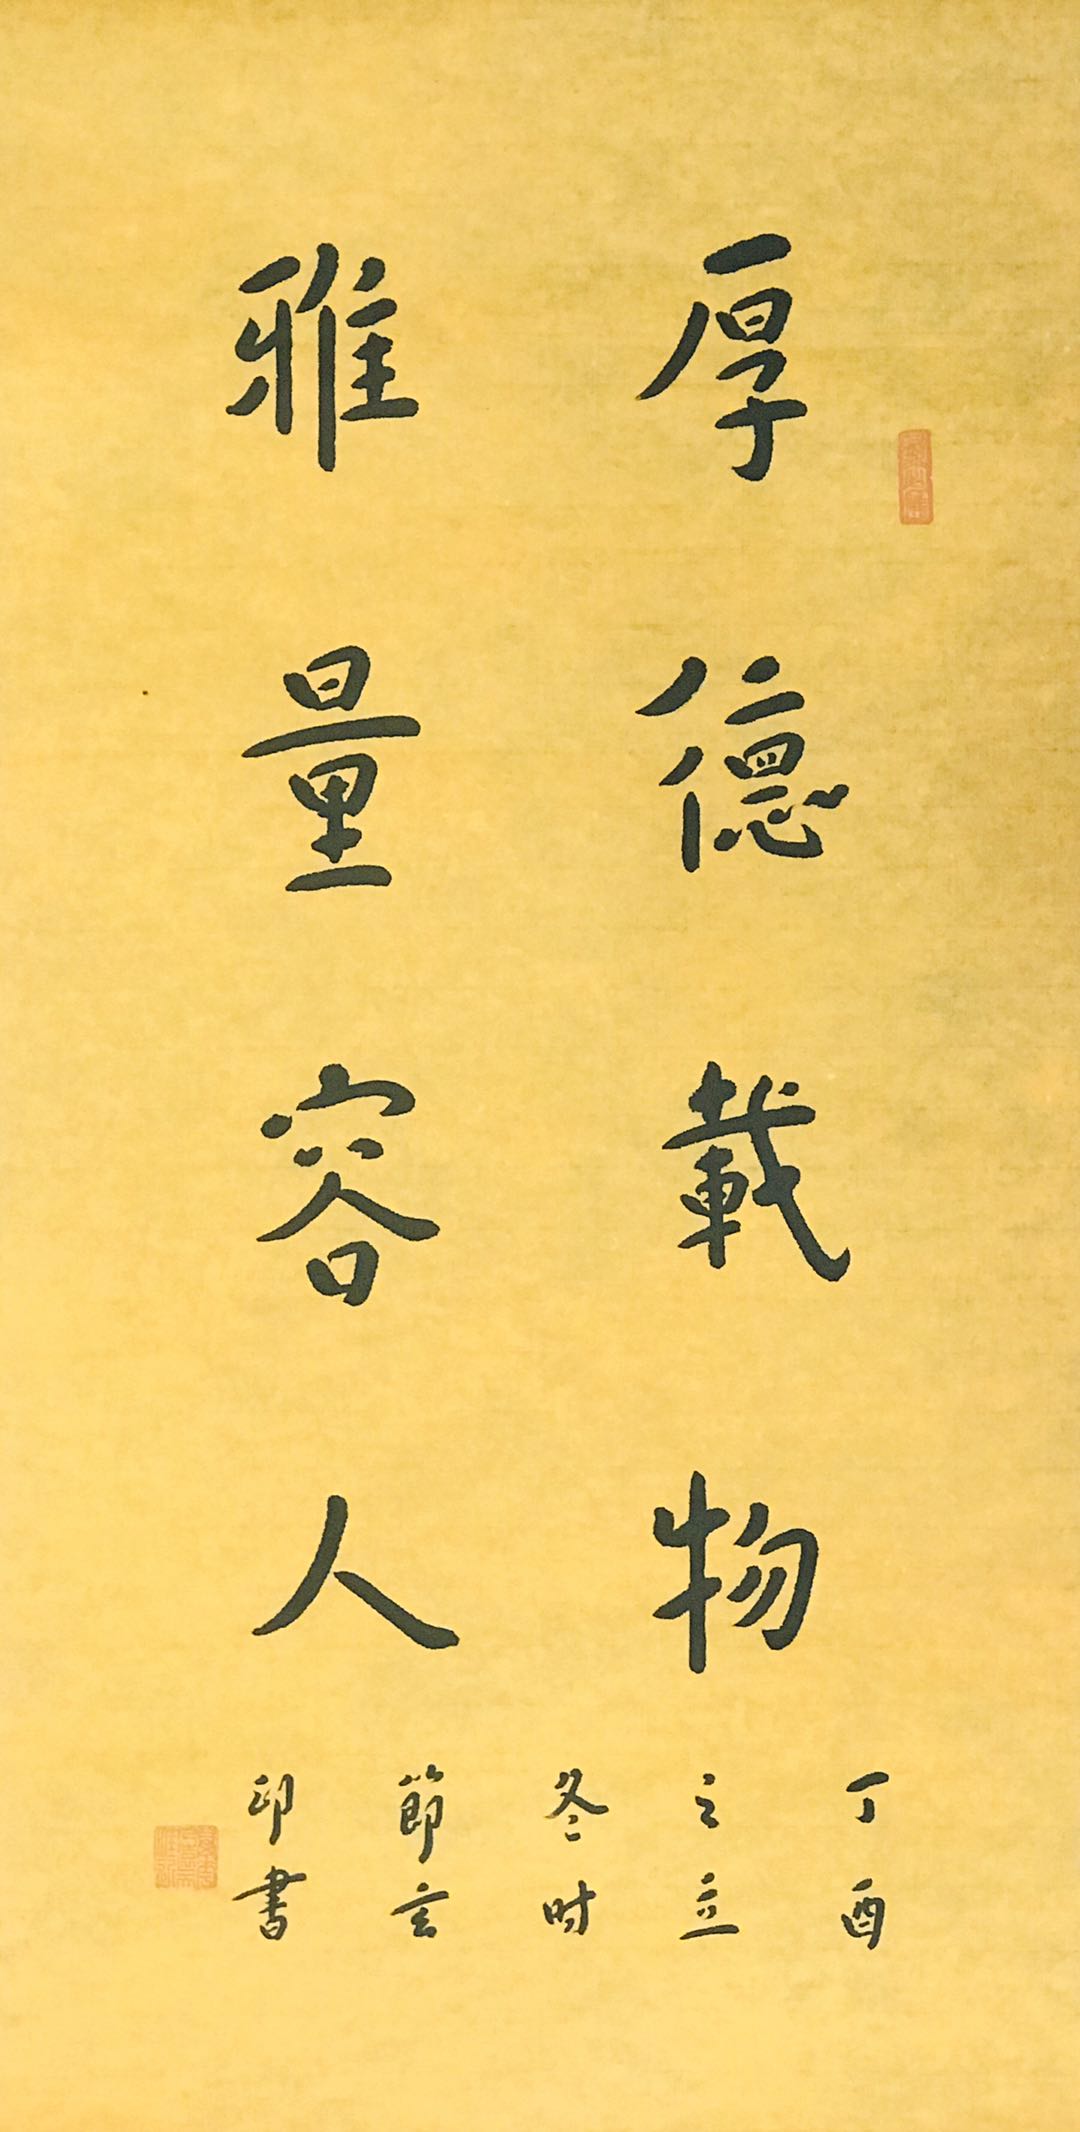 厚德載物
雅量容人
丁酉
之立
冬时
節玄
印書